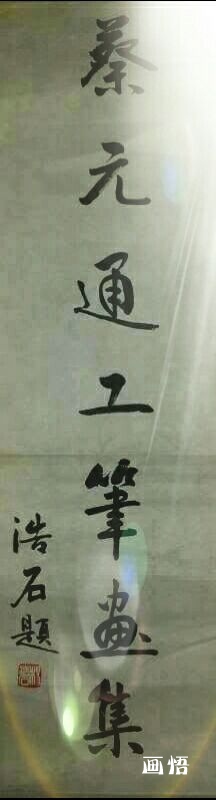 蔡元通工筆畫集
浩石題
画悟